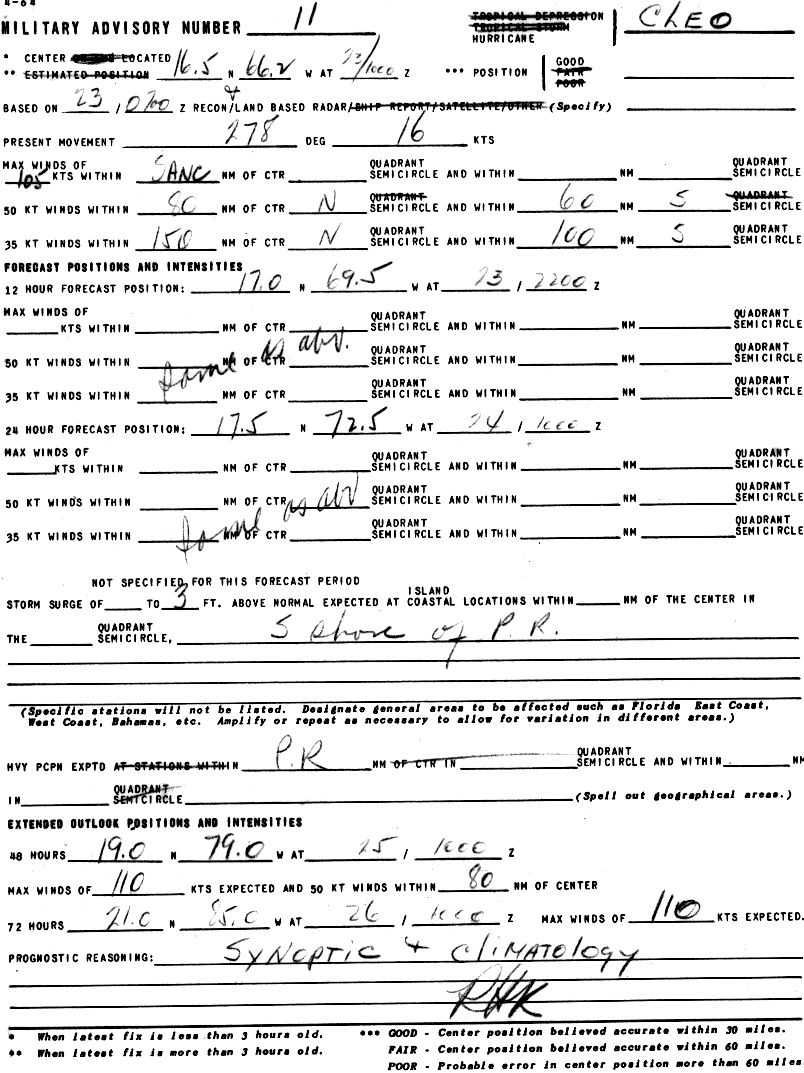 4-64
MILITARY ADVISORY NUMBER 11 TROPICAL DEPRESSION CLEO
TROPICAL STORM
HURRICANE
* CENTER LOCATED 16.5 N 66.2 W AT 23/1000 Z *** POSITION GOOD
** ESTIMATED POSITION FAIR
POOR
BASED ON 23 / 0700 Z RECON/LAND BASED RADAR/SHIP REPORT/SATELLITE/OTHER (Specify)
PRESENT MOVEMENT 278 DEG 16 KTS
MAX WINDS OF QUADRANT QUADRANT
105 KTS WITHIN SANC NM OF CTR SEMICIRCLE AND WITHIN NM SEMICIRCLE
QUADRANT QUADRANT
50 KT WINDS WITHIN 80 NM OF CTR N SEMICIRCLE AND WITHIN 60 NM S SEMICIRCLE
QUADRANT QUADRANT
35 KT WINDS WITHIN 150 NM OF CTR N SEMICIRCLE AND WITHIN 100 NM S SEMICIRCLE
FORECAST POSITIONS AND INTENSITIES
12 HOUR FORECAST POSITION: 17.0 N 69.5 W AT 23 / 2200 Z
MAX WINDS OF QUADRANT QUADRANT
KTS WITHIN NM OF CTR SEMICIRCLE AND WITHIN NM SEMICIRCLE
Same as abv.
QUADRANT QUADRANT
50 KT WINDS WITHIN NM OF CTR SEMICIRCLE AND WITHIN NM SEMICIRCLE
QUADRANT QUADRANT
35 KT WINDS WITHIN NM OF CTR SEMICIRCLE AND WITHIN NM SEMICIRCLE
24 HOUR FORECAST POSITION: 17.5 N 72.5 W AT 24 / 1000 Z
MAX WINDS OF QUADRANT QUADRANT
KTS WITHIN NM OF CTR SEMICIRCLE AND WITHIN NM SEMICIRCLE
QUADRANT QUADRANT
50 KT WINDS WITHIN NM OF CTR SEMICIRCLE AND WITHIN NM SEMICIRCLE
Same as abv
QUADRANT QUADRANT
35 KT WINDS WITHIN NM OF CTR SEMICIRCLE AND WITHIN NM SEMICIRCLE
NOT SPECIFIED FOR THIS FORECAST PERIOD
ISLAND
STORM SURGE OF TO 3 FT. ABOVE NORMAL EXPECTED AT COASTAL LOCATIONS WITHIN NM OF THE CENTER IN
QUADRANT
THE SEMICIRCLE, S shore of P.R.
(Specific stations will not be listed. Designate general areas to be affected such as Florida East Coast,
West Coast, Bahamas, etc. Amplify or repeat as necessary to allow for variation in different areas.)
QUADRANT
HVY PCPN EXPTD AT STATIONS WITHIN P.R NM OF CTR IN SEMICIRCLE AND WITHIN NM
QUADRANT
IN SEMICIRCLE (Spell out geographical areas.)
EXTENDED OUTLOOK POSITIONS AND INTENSITIES
48 HOURS 19.0 N 79.0 W AT 25 / 1000 Z
MAX WINDS OF 110 KTS EXPECTED AND 50 KT WINDS WITHIN 80 NM OF CENTER
72 HOURS 21.0 N 85.0 W AT 26 / 1000 Z MAX WINDS OF 110 KTS EXPECTED.
PROGNOSTIC REASONING: SYNOPTIC + CLIMATOLOGY
RHK
* When latest fix is less than 3 hours old. *** GOOD - Center position believed accurate within 30 miles.
** When latest fix is more than 3 hours old. FAIR - Center position believed accurate within 60 miles.
POOR - Probable error in center position more than 60 miles